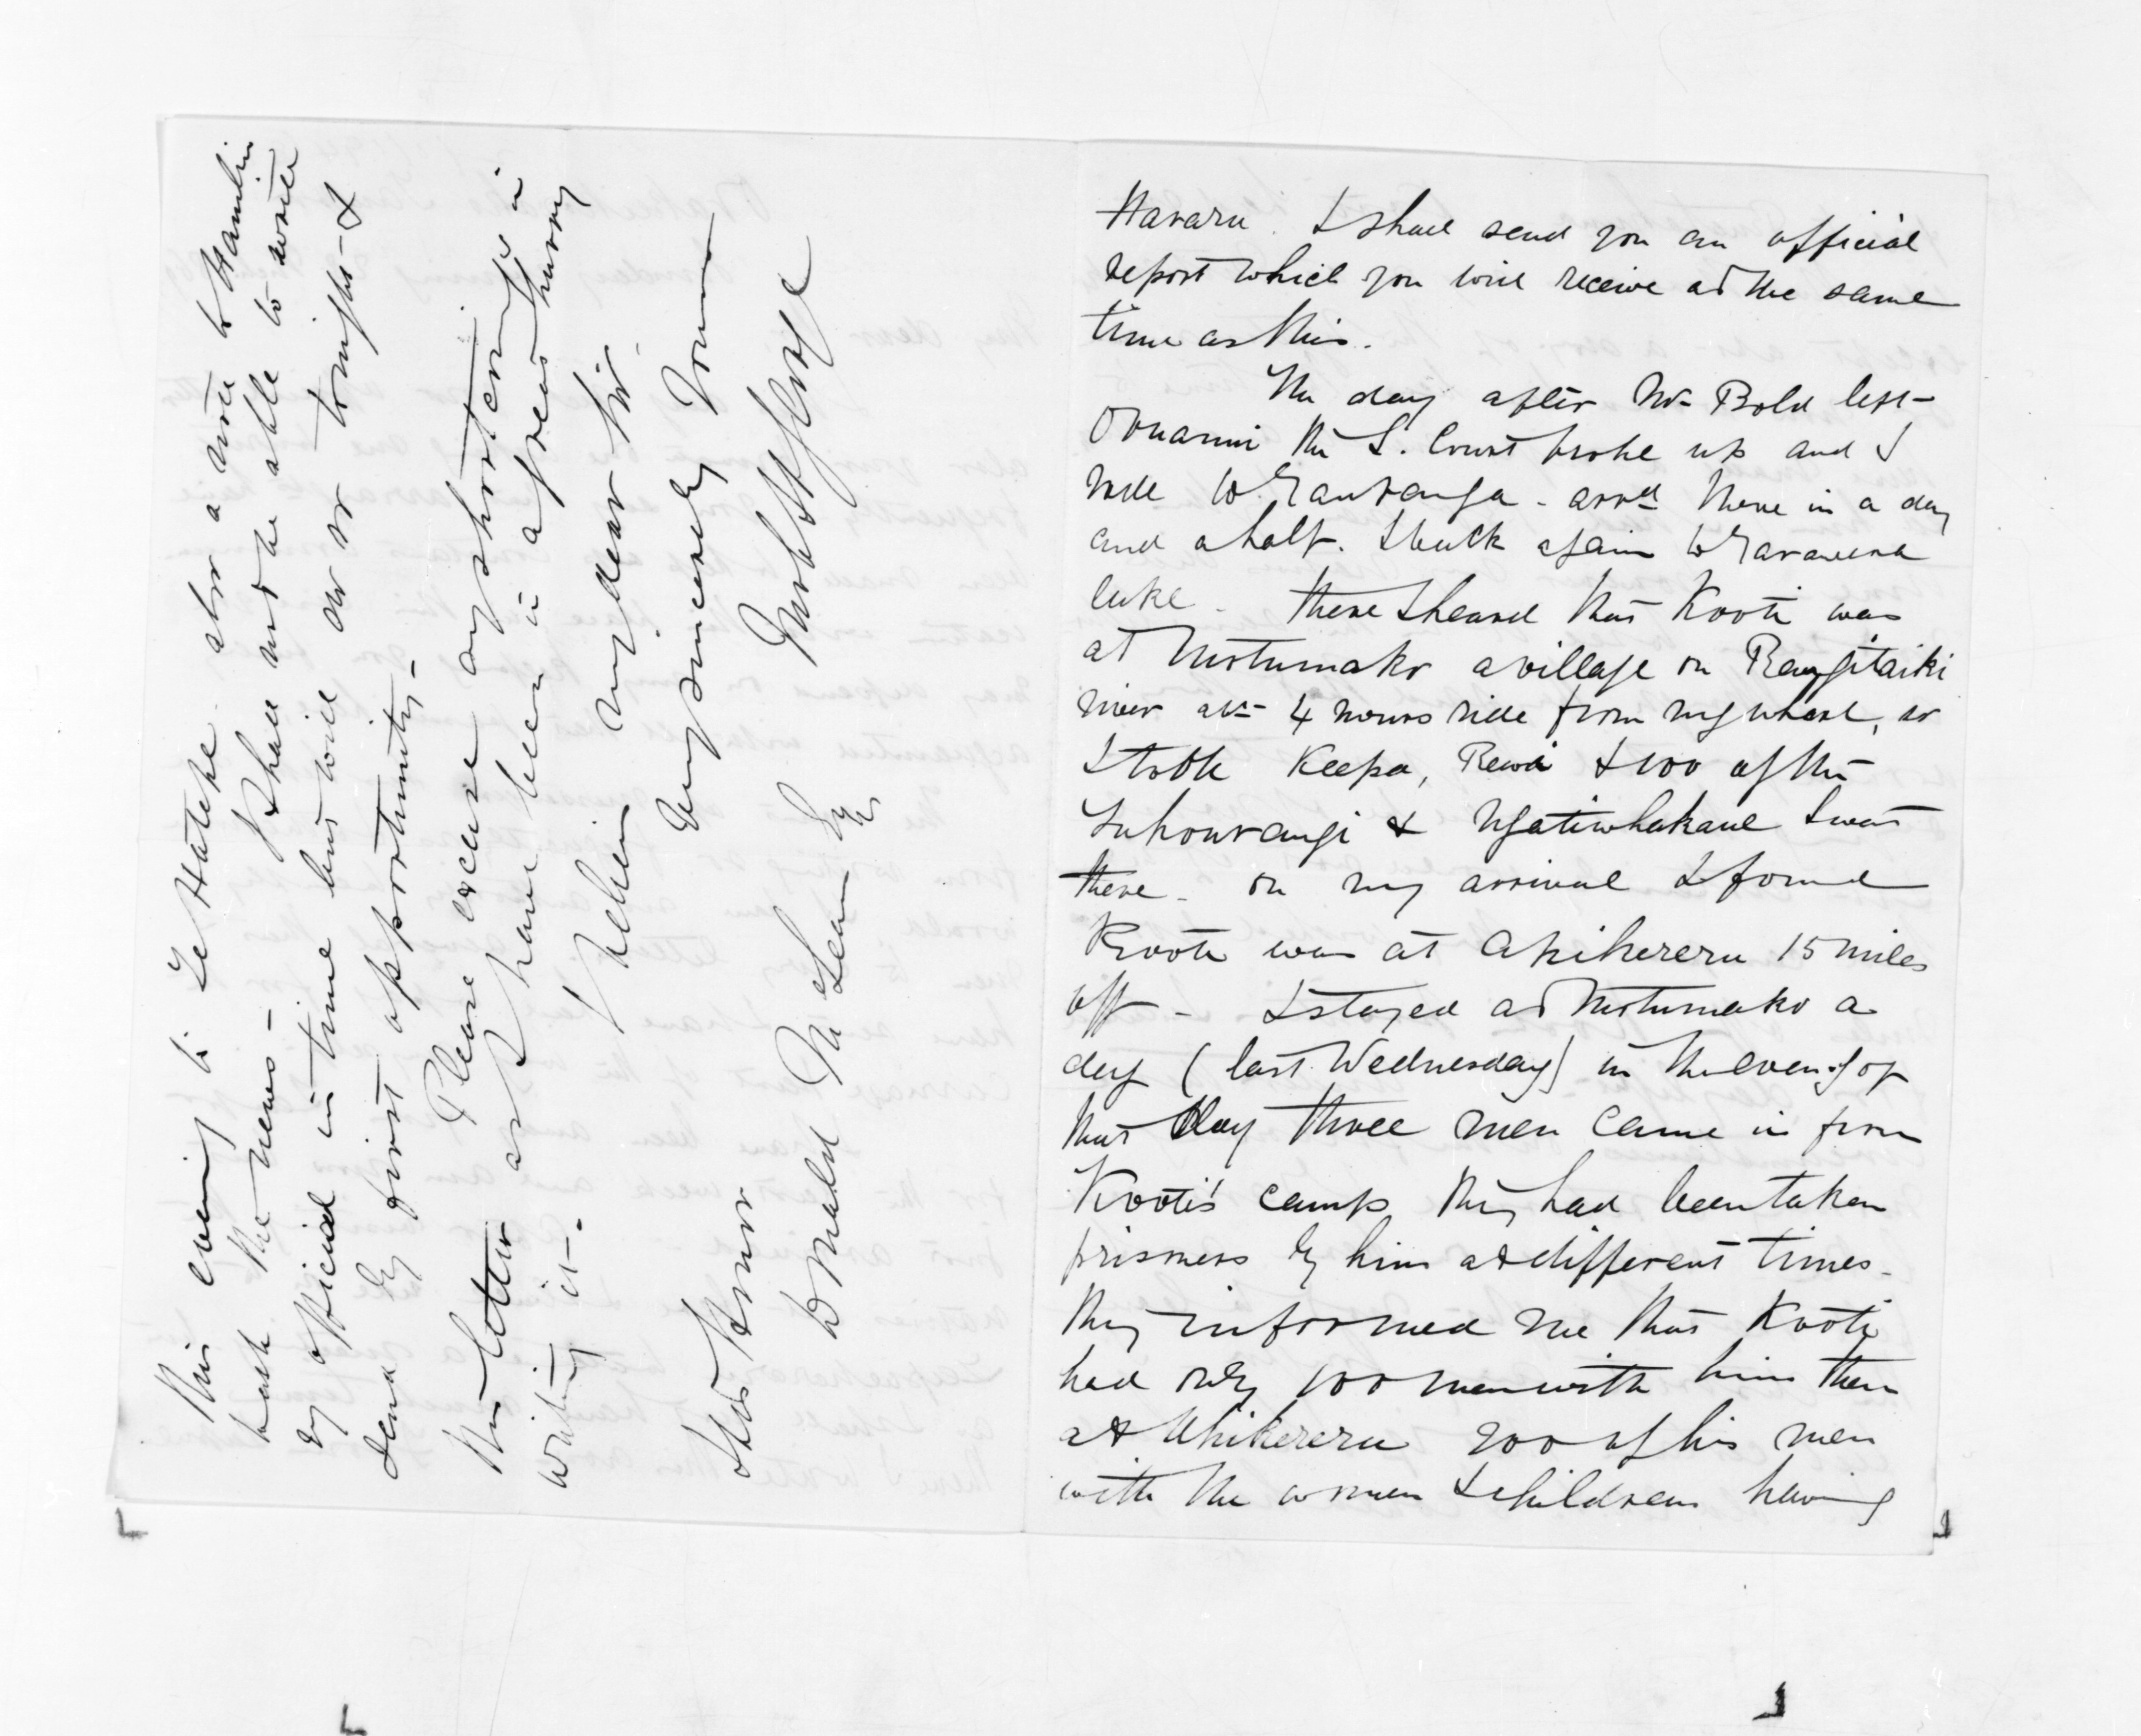 this evening to Te Hateke also a note to Hamlin
with the news - I shall not be able to write
my official in time but will do so tonight - &
send by first opportunity -
Please excuse any shortcomings in
this letter as I have been in a great hurry
writing it -.
Believe my dear Sir
Very sincerely Yours
Hon<sup>ble</sup>
Donald McLean Esq
Hararu. I shall send you an official
report which you will receive at the same
time as this.
The day after Mr Bold left
Oruanui the L. Court broke up and I
rode to Tauranga - arrd there in a day
and a half. I back again to Tarawera
lake - there I heard that Kooti was
at Motumako a village on Rangitaiki
river abt 4 hours ride from my whare, so
I took Keepa, Rewi & 100 of the
Tuhourangi & Ngatiwhakaue I went
there - on my arrival I found
Kooti was at Ahikereru 15 miles
off - I stayed at Motumako a
day (last Wednesday) in the eveng of
that day three men came in from
Kooti's camp they had been taken
prisoners by him at different times -
they informed me that Kooti
had only 100 men with him then
at Ahikereru 200 of his men
with the women & children having